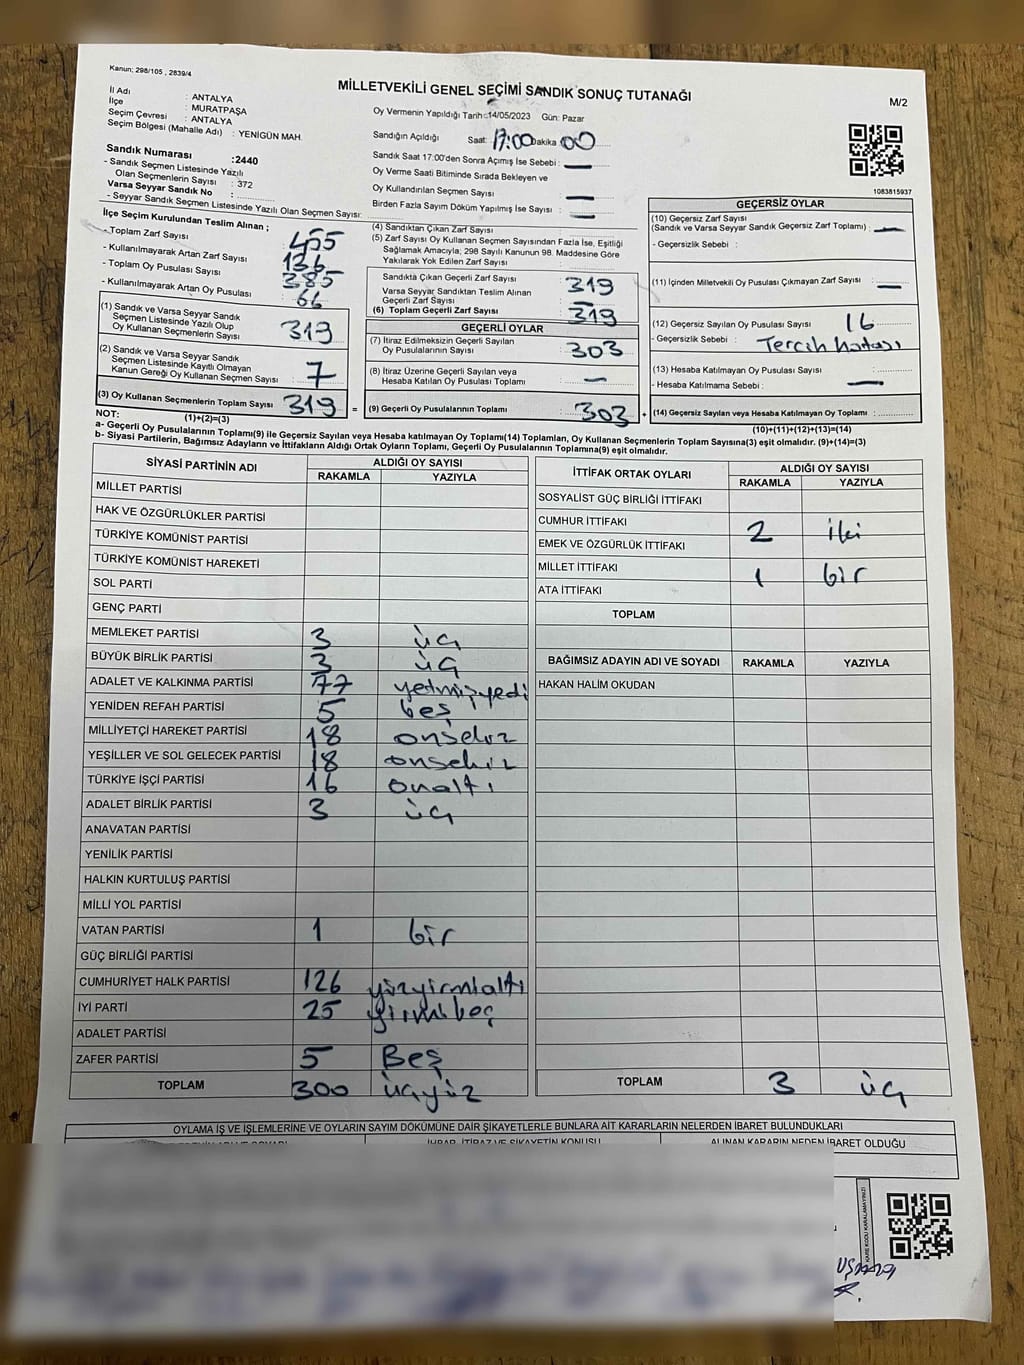 Kanun; 298/105 , 2839/4
MİLLETVEKİLİ GENEL SEÇİMİ SANDIK SONUÇ TUTANAĞI
M/2
İl Adı : ANTALYA
İlçe : MURATPAŞA
Seçim Çevresi : ANTALYA
Seçim Bölgesi (Mahalle Adı) : YENİGÜN MAH.
Oy Vermenin Yapıldığı Tarih :14/05/2023 Gün: Pazar
Sandığın Açıldığı Saat: 17:00 Dakika 00
Sandık Saat 17:00'den Sonra Açımış İse Sebebi : —
Oy Verme Saati Bitiminde Sırada Bekleyen ve
Oy Kullandırılan Seçmen Sayısı : —
Birden Fazla Sayım Döküm Yapılmış İse Sayısı : —
1083815937
Sandık Numarası :2440
- Sandık Seçmen Listesinde Yazılı
Olan Seçmenlerin Sayısı : 372
Varsa Seyyar Sandık No :
- Seyyar Sandık Seçmen Listesinde Yazılı Olan Seçmen Sayısı:
İlçe Seçim Kurulundan Teslim Alınan ;
- Toplam Zarf Sayısı : 455
- Kullanılmayarak Artan Zarf Sayısı : 136
- Toplam Oy Pusulası Sayısı : 385
- Kullanılmayarak Artan Oy Pusulası : 66
(1) Sandık ve Varsa Seyyar Sandık
Seçmen Listesinde Yazılı Olup
Oy Kullanan Seçmenlerin Sayısı : 319
(2) Sandık ve Varsa Seyyar Sandık
Seçmen Listesinde Kayıtlı Olmayan
Kanun Gereği Oy Kullanan Seçmen Sayısı : 7
(3) Oy Kullanan Seçmenlerin Toplam Sayısı : 319 =
(1)+(2)=(3)
(4) Sandıktan Çıkan Zarf Sayısı :
(5) Zarf Sayısı Oy Kullanan Seçmen Sayısından Fazla İse, Eşitliği
Sağlamak Amacıyla; 298 Sayılı Kanunun 98. Maddesine Göre
Yakılarak Yok Edilen Zarf Sayısı :
Sandıkta Çıkan Geçerli Zarf Sayısı : 319
Varsa Seyyar Sandıktan Teslim Alınan
Geçerli Zarf Sayısı : —
(6) Toplam Geçerli Zarf Sayısı : 319
GEÇERLİ OYLAR
(7) İtiraz Edilmeksizin Geçerli Sayılan
Oy Pusulalarının Sayısı : 303
(8) İtiraz Üzerine Geçerli Sayılan veya
Hesaba Katılan Oy Pusulası Toplamı : —
(9) Geçerli Oy Pusulalarının Toplamı : 303 +
GEÇERSİZ OYLAR
(10) Geçersiz Zarf Sayısı
(Sandık ve Varsa Seyyar Sandık Geçersiz Zarf Toplamı) : —
- Geçersizlik Sebebi :
(11) İçinden Milletvekili Oy Pusulası Çıkmayan Zarf Sayısı : —
(12) Geçersiz Sayılan Oy Pusulası Sayısı : 16
- Geçersizlik Sebebi : Tercih hatası
(13) Hesaba Katılmayan Oy Pusulası Sayısı :
- Hesaba Katılmama Sebebi : —
(14) Geçersiz Sayılan veya Hesaba Katılmayan Oy Toplamı :
(10)+(11)+(12)+(13)=(14)
NOT:
a- Geçerli Oy Pusulalarının Toplamı(9) ile Geçersiz Sayılan veya Hesaba katılmayan Oy Toplamı(14) Toplamları, Oy Kullanan Seçmenlerin Toplam Sayısına(3) eşit olmalıdır. (9)+(14)=(3)
b- Siyasi Partilerin, Bağımsız Adayların ve İttifakların Aldığı Ortak Oyların Toplamı, Geçerli Oy Pusulalarının Toplamına(9) eşit olmalıdır.
SİYASİ PARTİNİN ADI ALDIĞI OY SAYISI
RAKAMLA YAZIYLA
MİLLET PARTİSİ
HAK VE ÖZGÜRLÜKLER PARTİSİ
TÜRKİYE KOMÜNİST PARTİSİ
TÜRKİYE KOMÜNİST HAREKETİ
SOL PARTİ
GENÇ PARTİ
MEMLEKET PARTİSİ 3 üç
BÜYÜK BİRLİK PARTİSİ 3 üç
ADALET VE KALKINMA PARTİSİ 77 yetmişyedi
YENİDEN REFAH PARTİSİ 5 beş
MİLLİYETÇİ HAREKET PARTİSİ 18 onsekiz
YEŞİLLER VE SOL GELECEK PARTİSİ 18 onsekiz
TÜRKİYE İŞÇİ PARTİSİ 16 onaltı
ADALET BİRLİK PARTİSİ 3 üç
ANAVATAN PARTİSİ
YENİLİK PARTİSİ
HALKIN KURTULUŞ PARTİSİ
MİLLİ YOL PARTİSİ
VATAN PARTİSİ 1 bir
GÜÇ BİRLİĞİ PARTİSİ
CUMHURİYET HALK PARTİSİ 126 yüzyirmialtı
İYİ PARTİ 25 yirmibeş
ADALET PARTİSİ
ZAFER PARTİSİ 5 Beş
TOPLAM 300 üçyüz
İTTİFAK ORTAK OYLARI ALDIĞI OY SAYISI
RAKAMLA YAZIYLA
SOSYALİST GÜÇ BİRLİĞİ İTTİFAKI
CUMHUR İTTİFAKI 2 iki
EMEK VE ÖZGÜRLÜK İTTİFAKI
MİLLET İTTİFAKI 1 bir
ATA İTTİFAKI
TOPLAM
BAĞIMSIZ ADAYIN ADI VE SOYADI RAKAMLA YAZIYLA
HAKAN HALİM OKUDAN
TOPLAM 3 üç
OYLAMA İŞ VE İŞLEMLERİNE VE OYLARIN SAYIM DÖKÜMÜNE DAİR ŞİKAYETLERLE BUNLARA AİT KARARLARIN NELERDEN İBARET BULUNDUKLARI
İHBAR, İTİRAZ VE ŞİKAYETİN KONUSU ALINAN KARARIN NEDEN İBARET OLDUĞU
KARE KODU KARALAMAYINIZ!